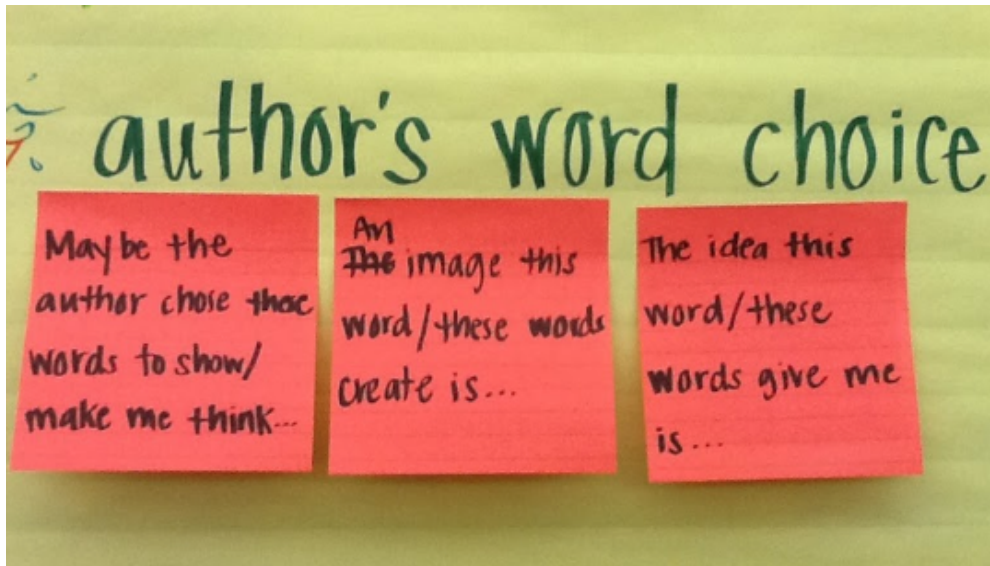 author's word choice
Maybe the
author chose these
words to show/
make me think...
An
The image this
word/these words
create is...
The idea this
word/these
words give me
is...